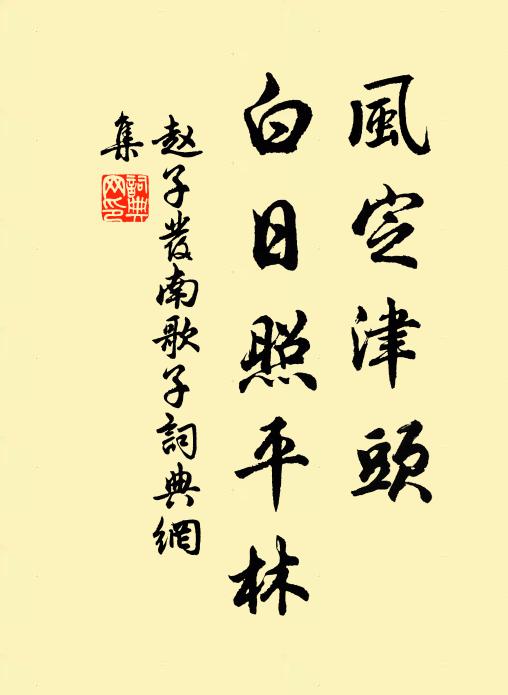 風定津頭
白日照平林
赵子發南歌子詞典網
集
詞典網印